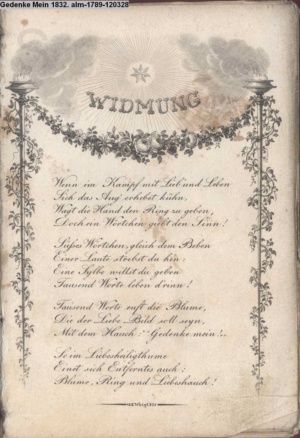 Gedenke Mein 1832. alm-1789-120328
WIDMUNG
Wenn im Kampf mit Lieb und Leben
Sich das Aug' erhebet kühn,
Wagt die Hand den Ring zu geben,
Doch ein Wörtchen giebt den Sinn!
Süßes Wörtchen, gleich dem Beben
Einer Laute stirbst du hin:
Eine Sylbe willst du geben
Tausend Worte leben d'rinn!
Tausend Worte ruft die Blume,
Die der Liebe Bild soll seyn,
Mit dem Hauch: Gedenke mein!
So im Liebesheiligthume
Einet sich Entferntes auch:
Blume, Ring und Liebeshauch!